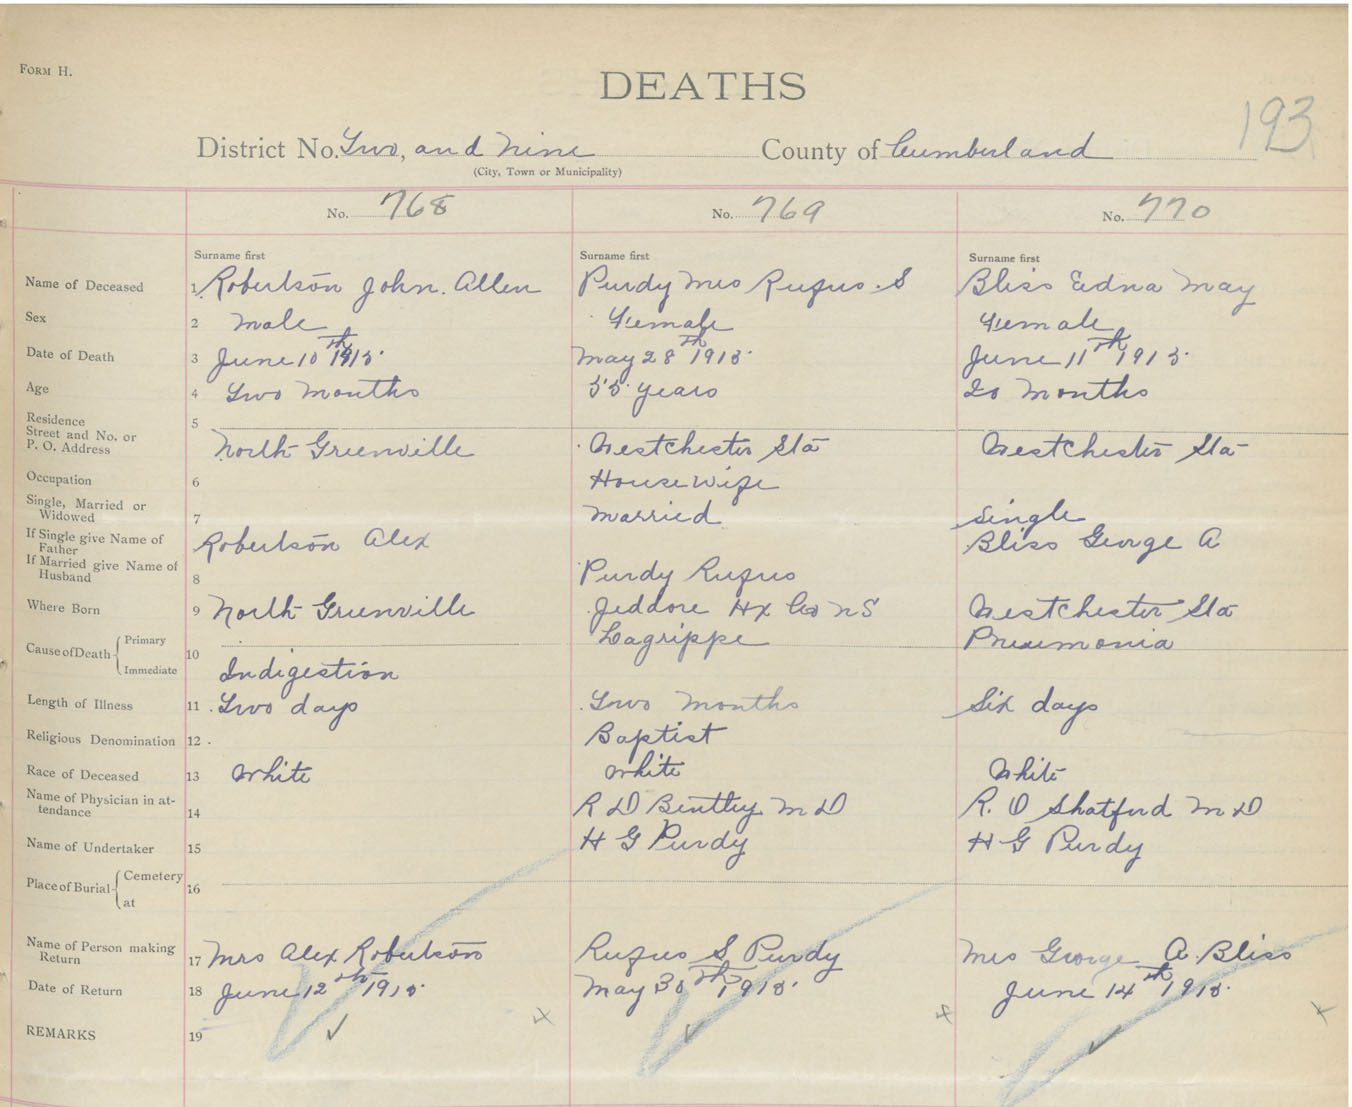 FORM H.
DEATHS
193
District No. Two, and Nine County of Cumberland
(City, Town or Municipality)
No. 768 No. 769 No. 770
Surname first Surname first Surname first
Name of Deceased 1 Robertson John. Allen Purdy Mrs Rufus. S Bliss Edna May
Sex 2 Male Female Female
Date of Death 3 June 10th 1915. May 28th 1915. June 11th 1915.
Age 4 Two Months 55 years 20 Months
Residence
Street and No. or 5
P. O. Address North Greenville Westchester Sta Westchester Sta
Occupation 6 House wife
Single, Married or
Widowed 7 Married Single
If Single give Name of
Father Robertson Alex Bliss George A
If Married give Name of
Husband 8 Purdy Rufus
Where Born 9 North Greenville Jeddore Hx Co N S Westchester Sta
Cause of Death Primary 10 Lagrippe Pneumonia
Immediate Indigestion
Length of Illness 11 Two days Two Months Six days
Religious Denomination 12 Baptist
Race of Deceased 13 White White White
Name of Physician in at-
tendance 14 R D Bentley M D R. O Shatford M D
Name of Undertaker 15 H G Purdy H G Purdy
Place of Burial Cemetery 16
at
Name of Person making
Return 17 Mrs Alex Robertson Rufus S Purdy Mrs George A. Bliss
Date of Return 18 June 12th 1915. May 30th 1915. June 14th 1915.
REMARKS 19